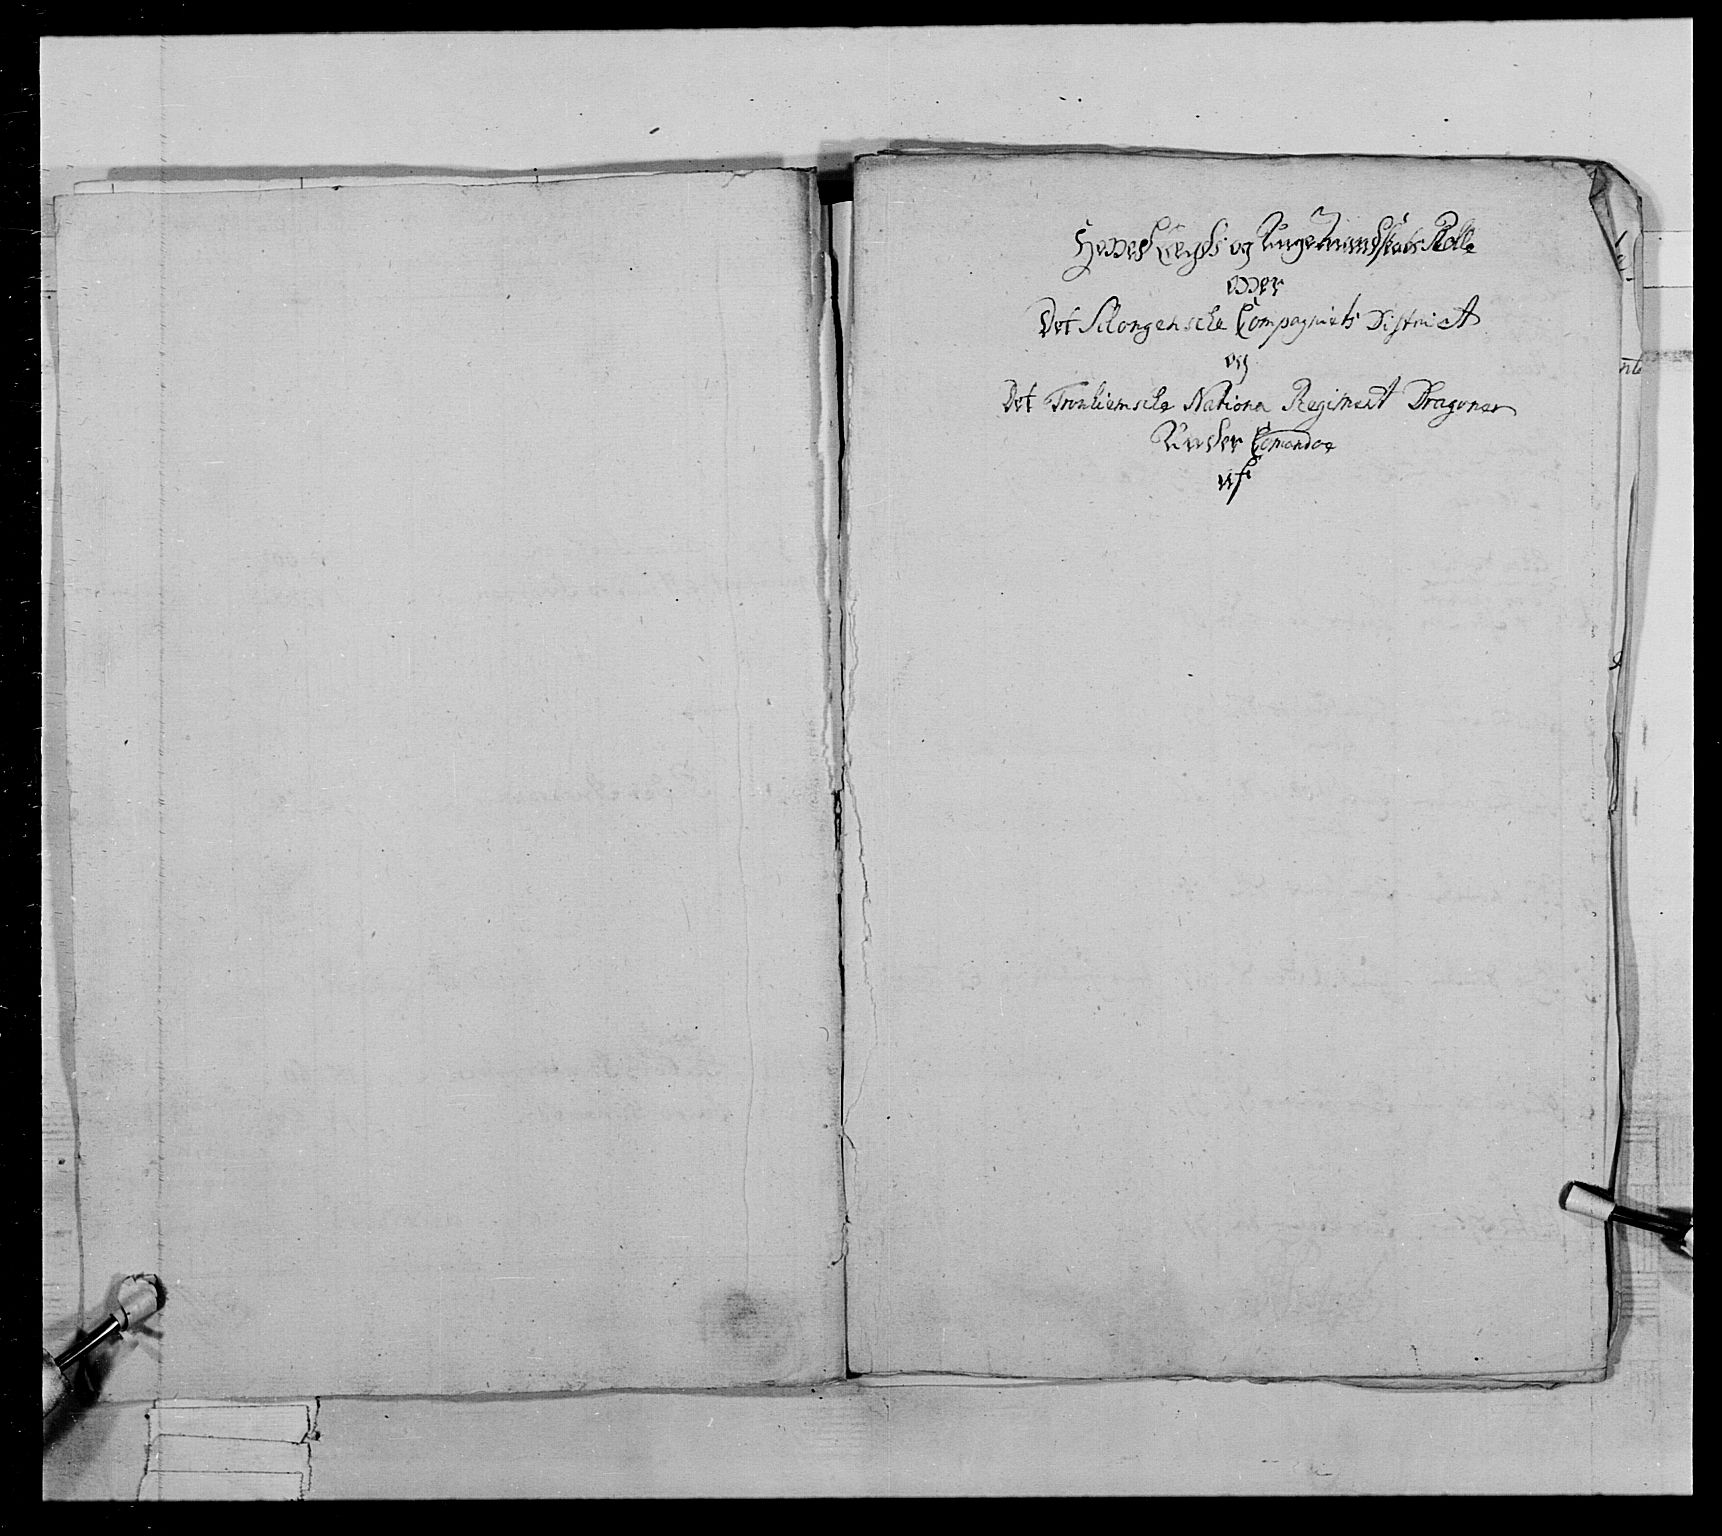 Hoved Lægds og Unge Mandskabs Rolle
over
Det Schongensche Compagniets District
og
Det Tronhiemsche Nationa Regiment Dragoner
Under Comandoe
af